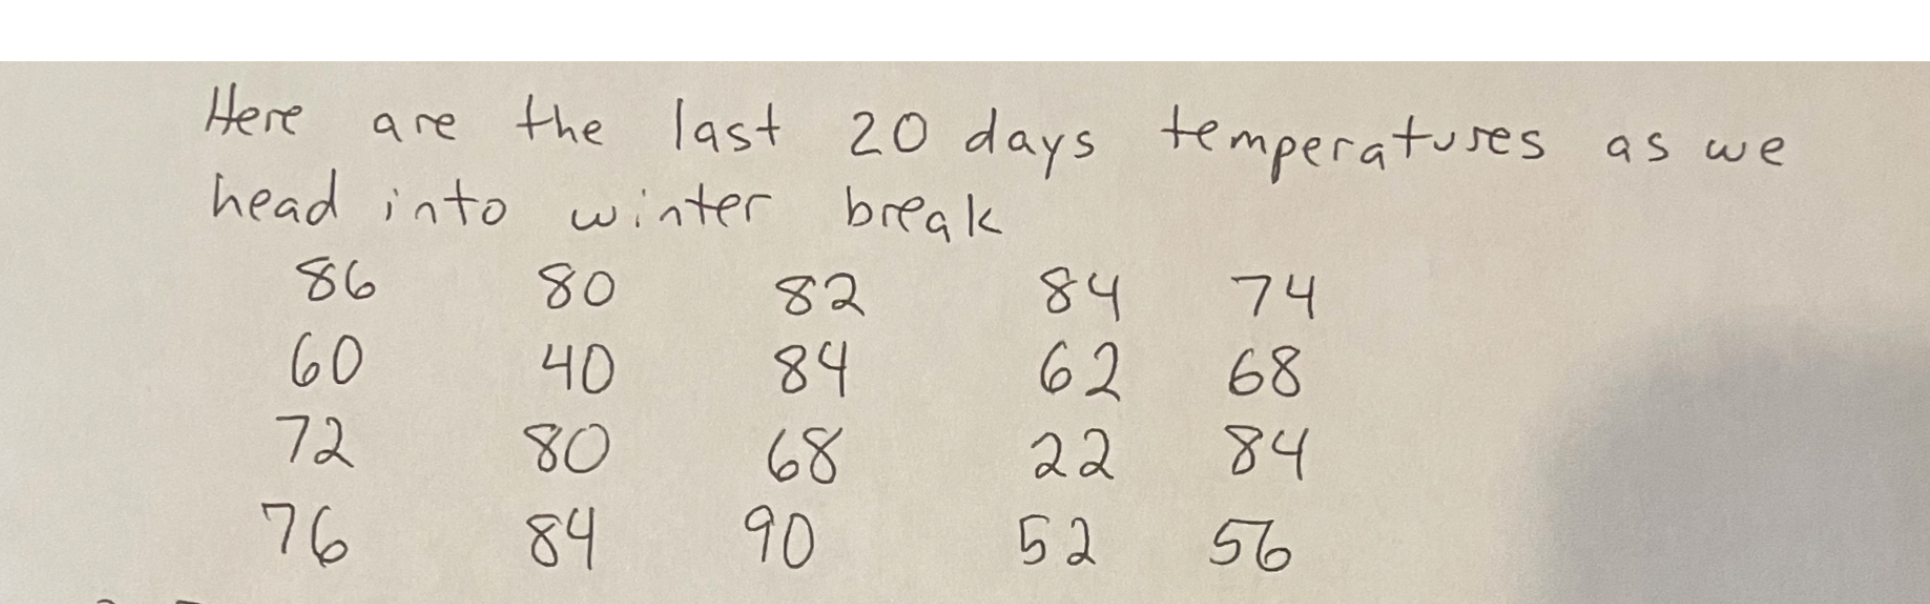 Here are the last 20 days temperatures as we
head into winter break
86 80 82 84 74
60 40 84 62 68
72 80 68 22 84
76 84 90 52 56